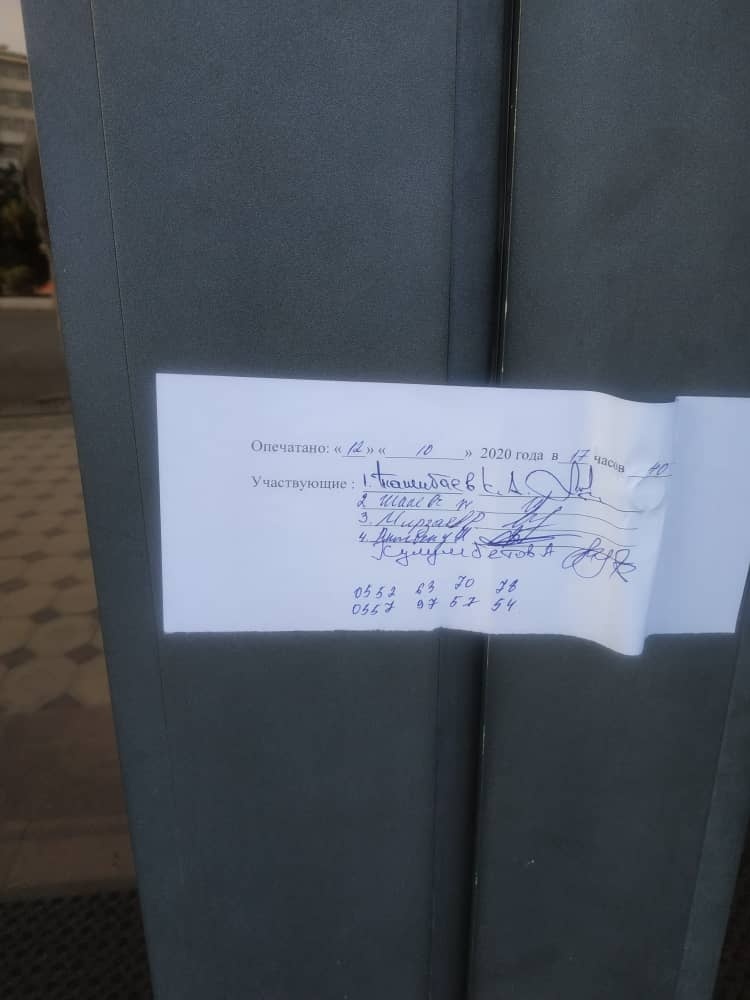 Опечатано: «12» «10» 2020 года в 17 часов 40
Участвующие : 1. Ташибаев К. А.
2 Шаев Ж
3. Мирзаев Р.
4.
Кулумбетов А
0552 23 70 78
0557 97 57 54